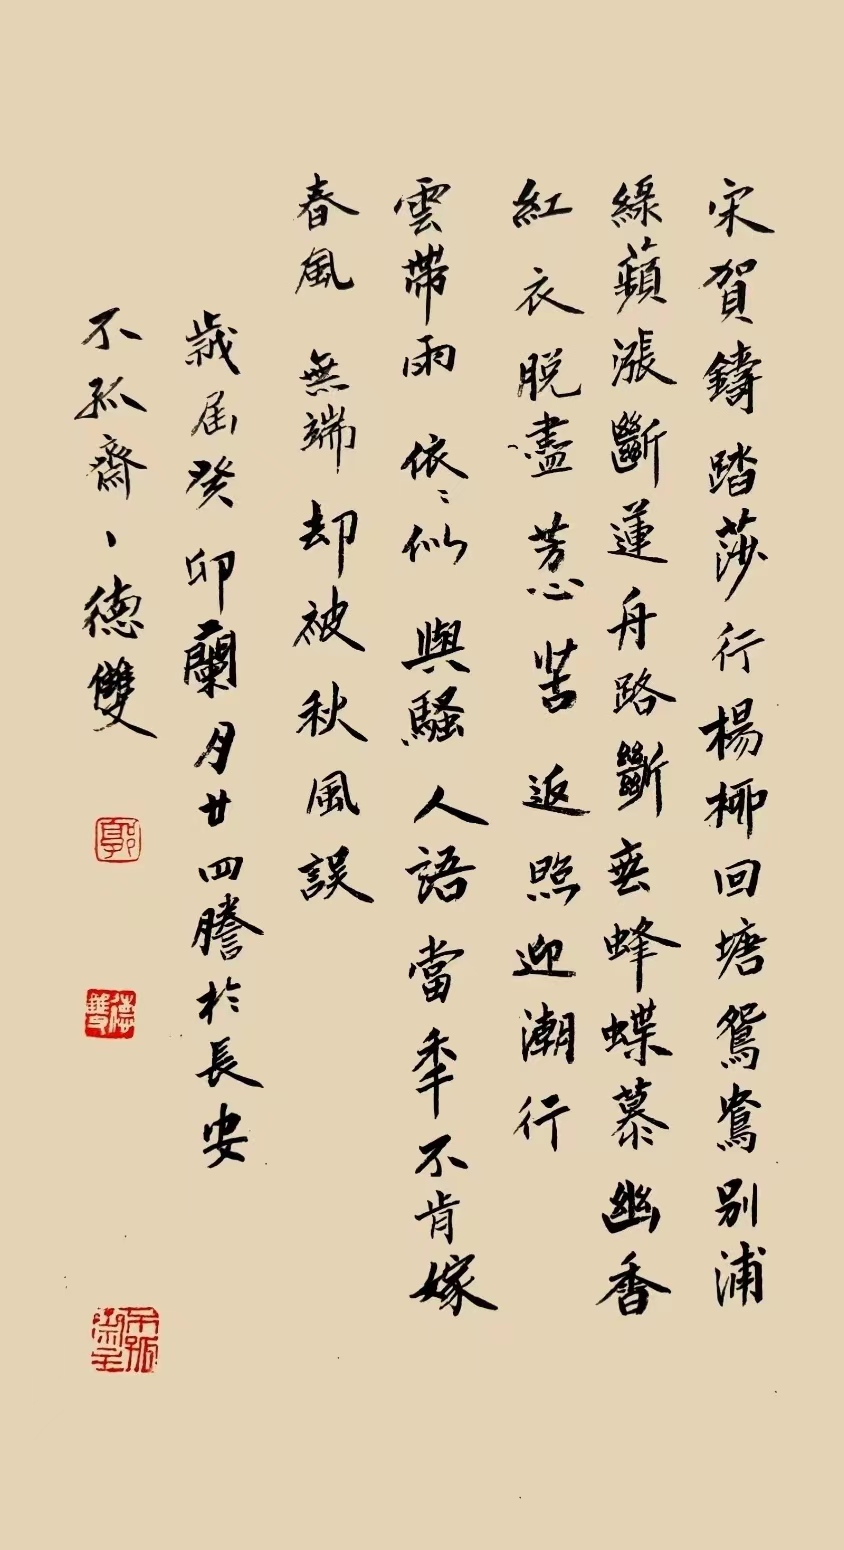 宋賀鑄踏莎行楊柳回塘鴛鴦別浦
綠蘋漲斷蓮舟路斷無蜂蝶慕幽香
紅衣脫盡芳心苦返照迎潮行
雲帶雨依〻似與騷人語當年不肯嫁
春風無端却被秋風誤
歲屆癸卯蘭月廿四謄於長安
不孤齋、德雙
郭
德雙
不孤齋主